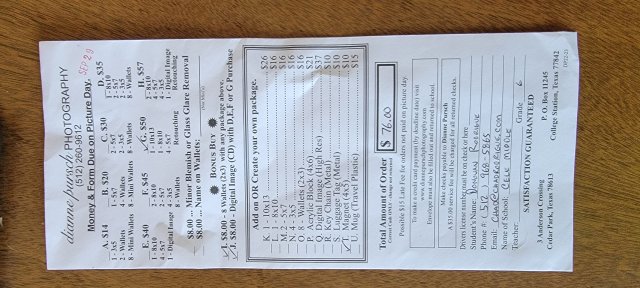 dianne pursch PHOTOGRAPHY
(512) 260-9612
SEP 29
Money & Form Due on Picture Day.
A. $14
1 - 3x5
2 - Wallets
8 - Mini Wallets
B. $20
1 - 5x7
4 - Wallets
8 - Mini Wallets
C. $30
2 - 5x7
2 - 3x5
8 - Wallets
D. $35
1 - 8x10
2 - 5x7
2 - 3x5
8 - Wallets
E. $40
1 - 8x10
4 - 5x7
1 - Digital Image
F. $45
1 - 8x10
2 - 5x7
4 - 3x5
8 - Wallets
G. $50
1 - 10x13
Retouching
H. $57
1 - 8x10
4 - 5x7
4 - 3x5
1 - Digital Image
Retouching
$8.00 ... Minor Blemish or Glass Glare Removal
$8.00 ... Name on Wallets:
BONUS BUY
I. $8.00 - 8 Wallets (2x3) with any package above.
J. $8.00 - Digital Image (CD) with D,E,F or G Purchase
Add on OR Create your own package.
K. 1 - 10x13 $26
L. 1 - 8x10 $16
M. 2 - 5x7 $16
N. 4 - 3x5 $16
O. 8 - Wallets (2x3) $16
P. Acrylic Block (4x6) $21
Q. Digital Image (High Res) $37
R. Key Chain (Metal) $10
S. Luggage Tag (Metal) $10
T. Magnet (4x5) $10
U. Mug (Travel Plastic) $15
Total Amount of Order $ 76.00
Possible $15 Late Fee for orders not paid on picture day.
To make a credit card payment (by deadline date) visit:
Envelope must also be filled out and returned to school.
Make checks payable to Dianne Pursch
A $35.00 service fee will be charged for all returned checks.
Drivers license number must be on check here
Student's Name:
Phone #: (512) 769-5865
Email:
Name of School: CELE MIDDLE
Teacher: Grade 6
SATISFACTION GUARANTEED
3 Anderson Crossing
Cedar Park, Texas 78613
P. O. Box 11245
College Station, Texas 77842